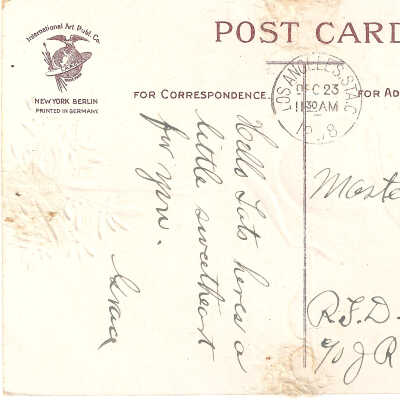 International Art Publ. Co.
NEW YORK BERLIN
PRINTED IN GERMANY
POST CARD
FOR CORRESPONDENCE.
FOR AD
LOS ANGELES, STA. C
DEC 23
11 30 AM
Hello Tots heres a
little sweetheart
for you.
Grace
Maste
R.F.D.
c/o J R